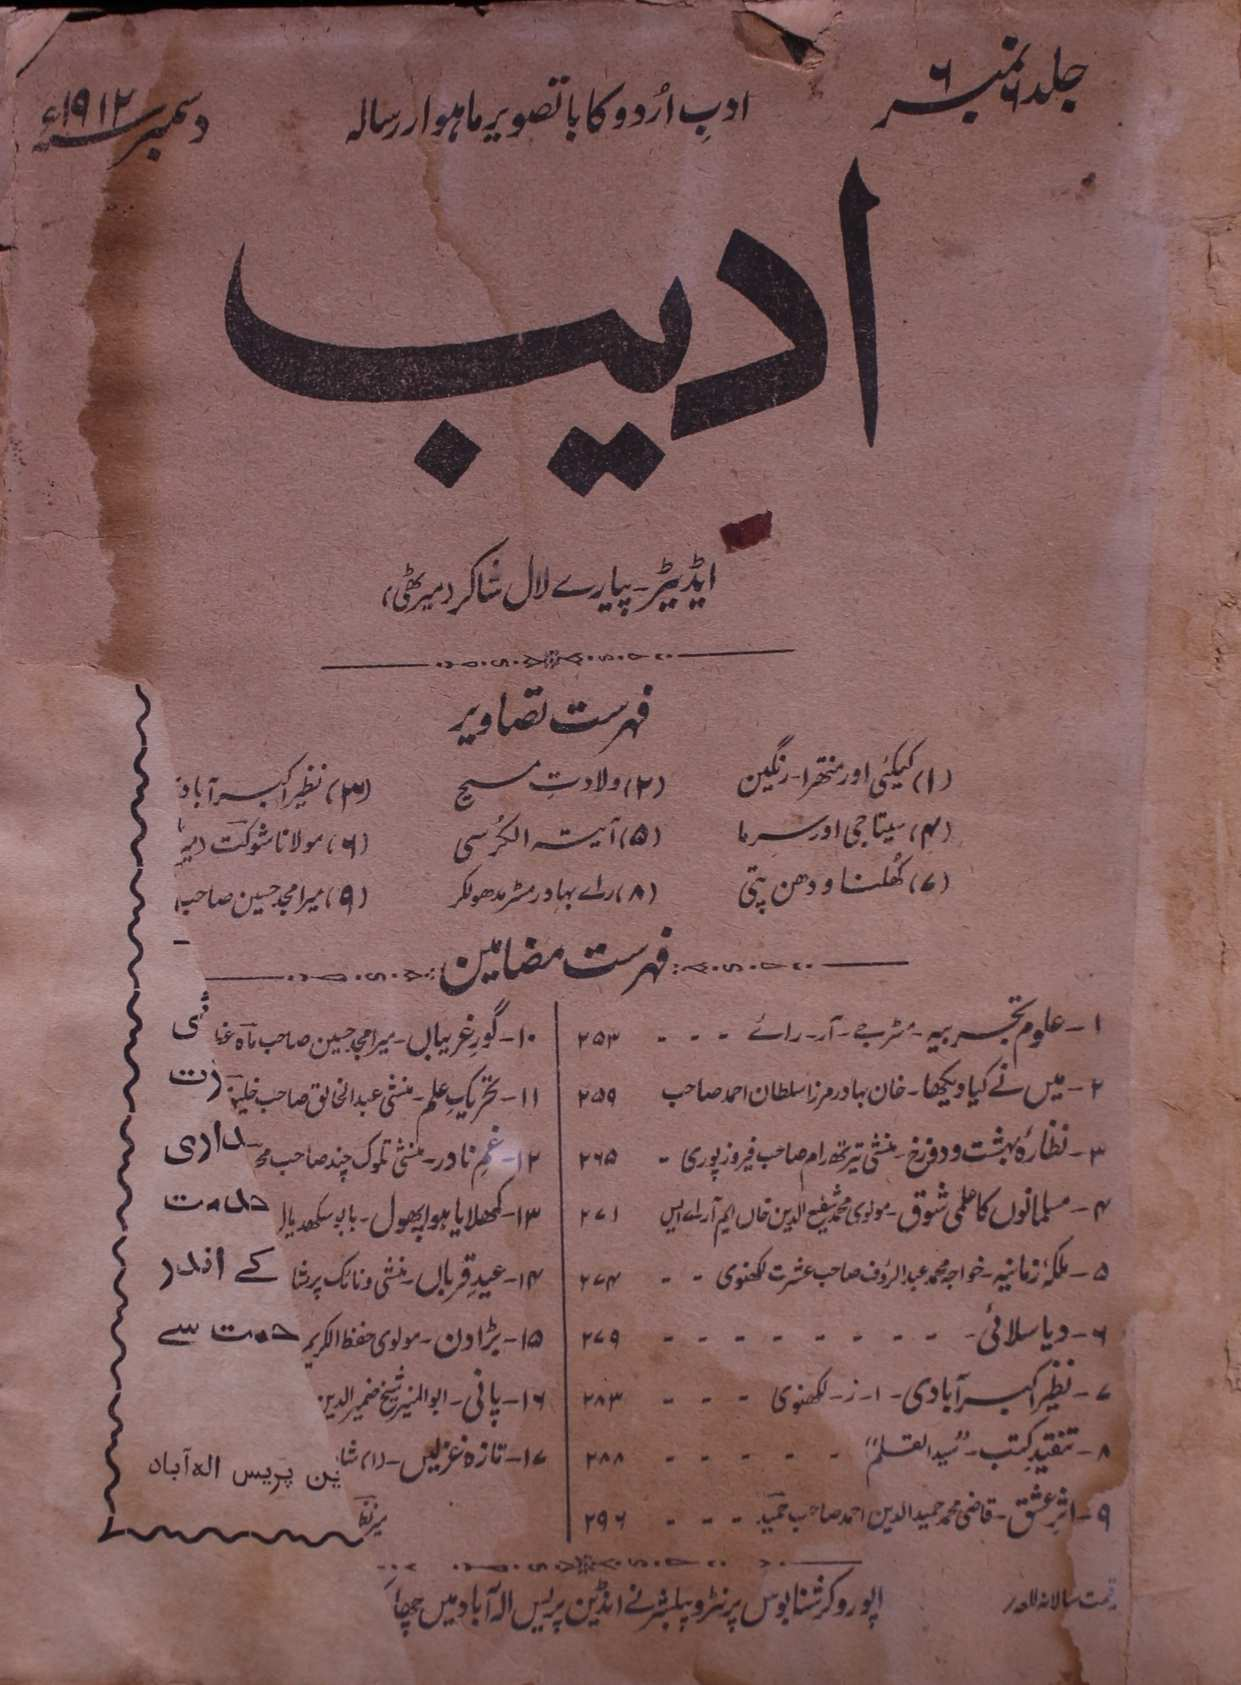 جلد ۶ نمبر ۶
ادبِ اُردو کا باتصویر ماہوار رسالہ
دسمبر سنہ ۱۹۱۲ء
ادیب
ایڈیٹر۔ پیارے لال شاکر (میرٹھی)
فہرست تصاویر
(۱) کیکئی اور منتھرا۔ رنگین (۲) ولادتِ مسیح (۳) نظیر اکبرآباد
(۴) سیتا جی اور سرما (۵) آیتہ الکرسی (۶) مولانا شوکت
(۷) کُھلنا و دھن پتی (۸) راے بہادر مسٹر مدھولکر (۹) میر امجد حسین صاحب
فہرست مضامین
۱۔ علوم تجربیہ۔ مسٹر جے۔ آر۔ رائے - - - ۲۵۳
۲۔ میں نے کیا دیکھا۔ خان بہادر مرزا سلطان احمد صاحب ۲۵۹
۳۔ نظارۂ بہشت و دوزخ۔ منشی تیرتھ رام صاحب فیروزپوری - ۲۶۵
۴۔ مسلمانوں کا علمی شوق۔ مولوی محمد شفیع الدین خاں ایم آر اے ایس ۲۷۱
۵۔ ملکۂ زمانیہ۔ خواجہ محمد عبدالرؤف صاحب عشرت لکھنوی - - ۲۷۴
۶۔ دیاسلائی۔ - - - - - - - - ۲۷۹
۷۔ نظیر اکبرآبادی۔ ا۔ ز۔ لکھنوی - - - ۲۸۳
۸۔ تنقید کتب۔ "سید القلم" - - - - - ۲۸۸
۹۔ اثرِ عشق۔ قاضی محمد حمید الدین احمد صاحب حمید - - - ۲۹۶
۱۰۔ گورِ غریباں۔ میر امجد حسین صاحب ماہ
۱۱۔ تحریکِ علم۔ منشی عبدالخالق صاحب
۱۲۔ غمِ نادر۔ منشی تلوک چند صاحب داری
۱۳۔ کمھلایا ہوا پھول۔ بابو
۱۴۔ عیدِ قرباں۔ منشی ونائک پرشا کے اندر
۱۵۔ بڑا دن۔ مولوی حفظ الکریم سے
۱۶۔ پانی۔ ابوالمنیر شیخ ضمیر الدین
۱۷۔ تازہ غزلیں۔ (۱) شا ین پریس الہ آباد
قیمت سالانہ
اپورو کرشنا بوس پرنٹر و پبلشر نے انڈین پریس الہ آباد میں چھاپا